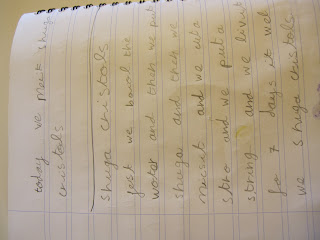 today we meck shuga
cristols
shuga cristols
fest we boro the
woter and then we put
shuga and then we
macsit and we uda
stro and we put a
string and we livit
for 7 days it wel
we shuga cristols